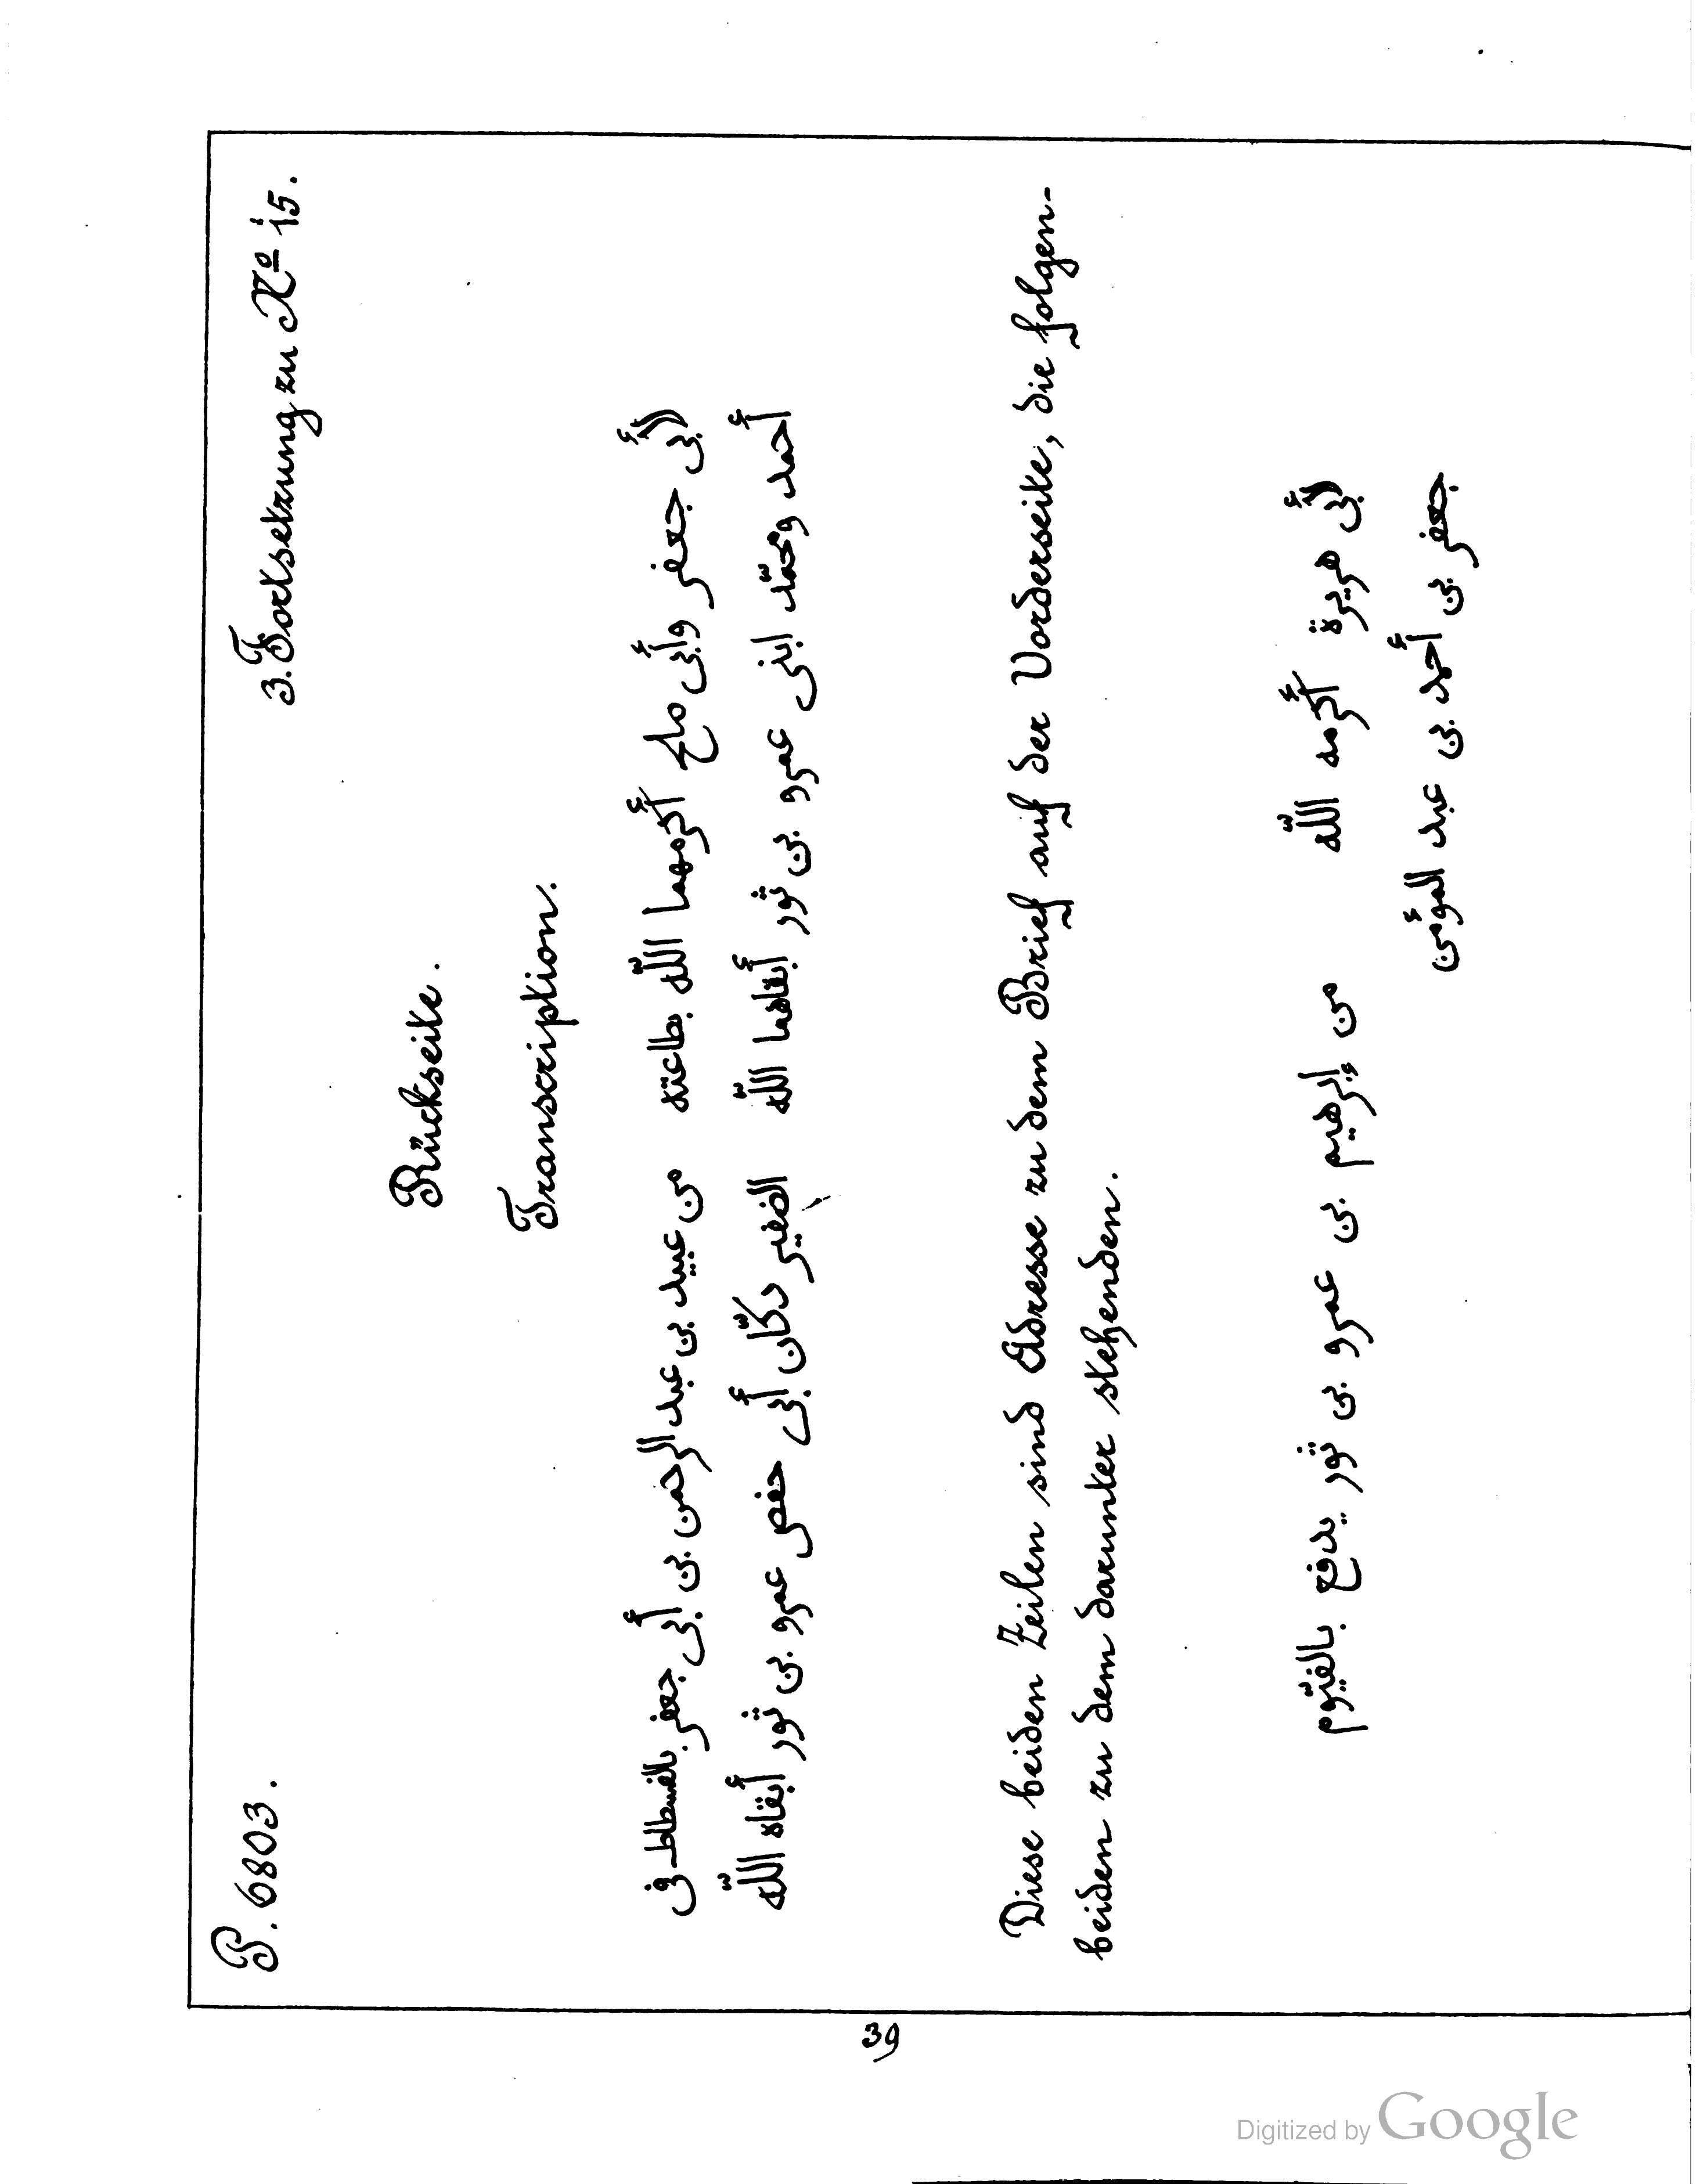 P. 6803.
3. Fortsetzung zu No 15.
Rückseite.
Transcription.
لأبى جعفر وأبى ملح أكرمهما اللّه بطاعته من عبيد بن عبد الرحمن بن أبى جعفر بالفسطاط فى
أحمد ومحمّد ابنى عمرو بن ثور أبقاهما اللّه الصغير دكّان أبى حفص عمرو بن ثور أبقاه اللّه
Diese beiden Zeilen sind Adresse zu dem Brief auf der Vorderseite, die folgen-
beiden zu dem darunter stehenden.
لأبى هريرة أكرمه اللّه من إبرهيم بن عمرو بن ثور يدفع بالفيّوم
جعفر بن أحمد بن عبد المؤمن
39
Digitized by Google